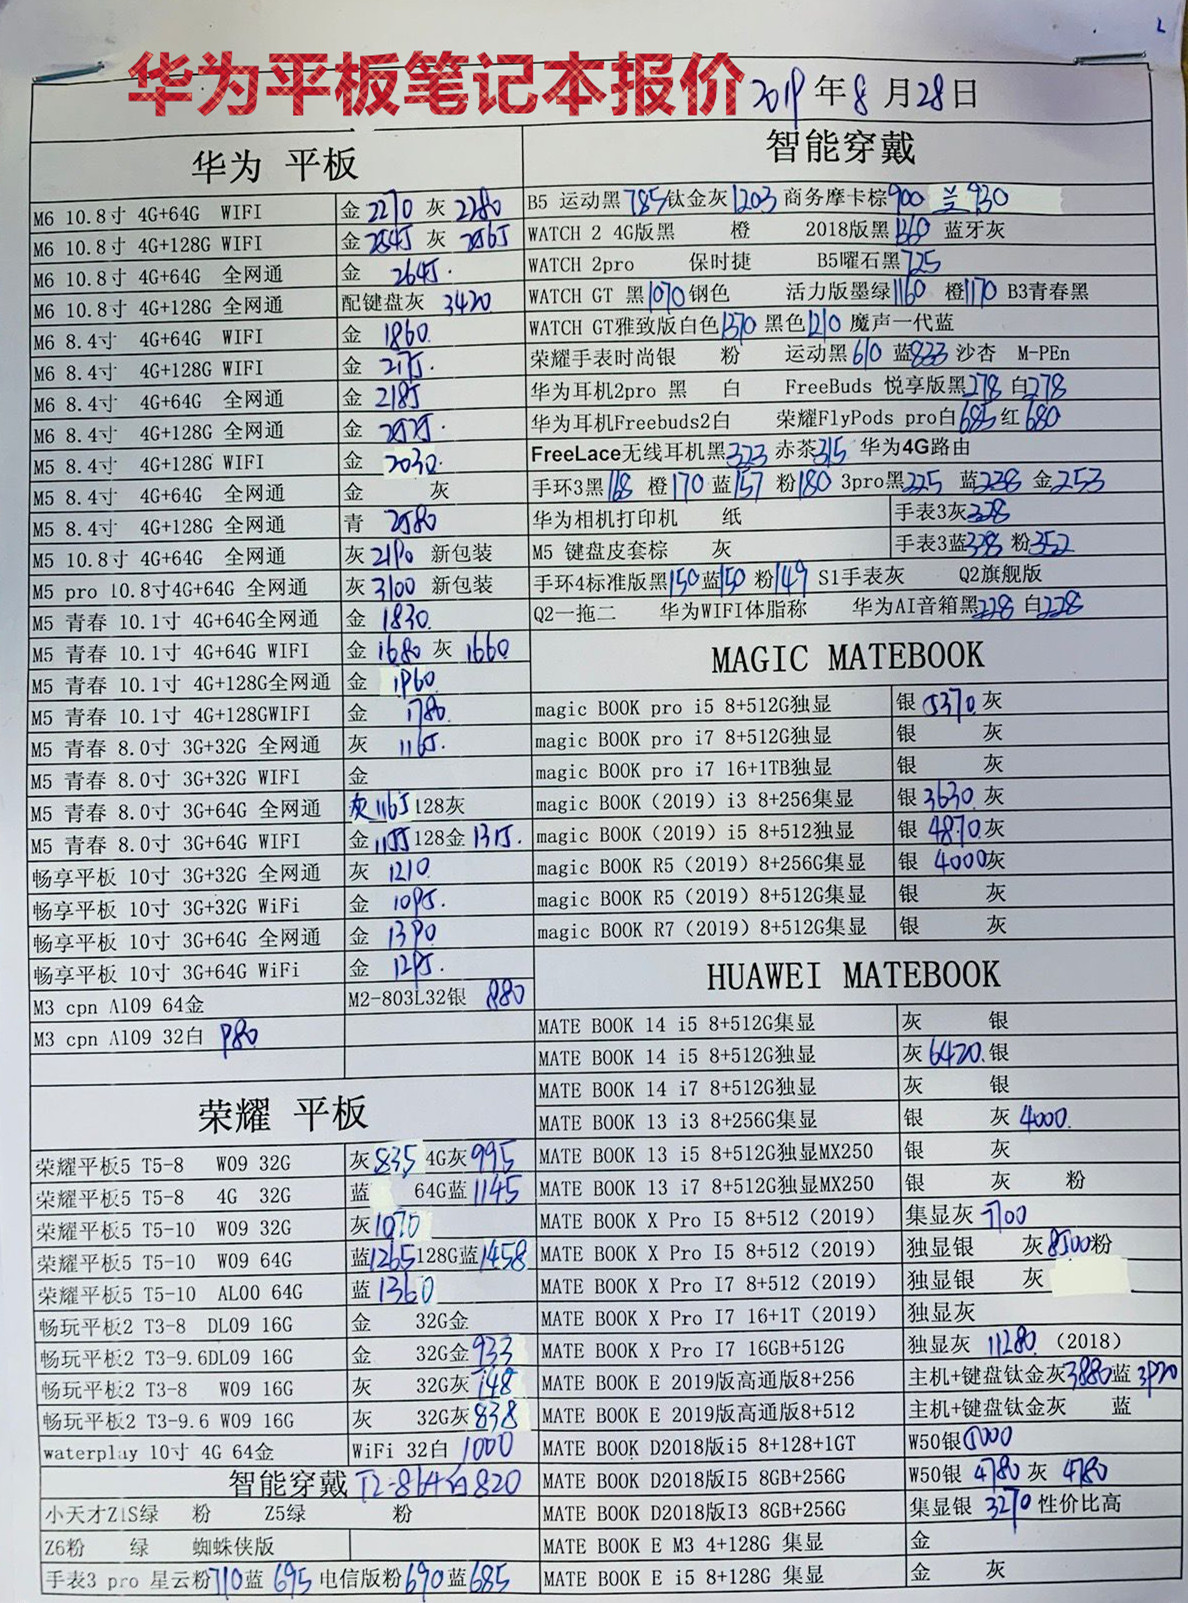 华为平板笔记本报价
2019年8月28日
华为 平板
M6 10.8寸 4G+64G WIFI 金 2270 灰 2280
M6 10.8寸 4G+128G WIFI 金 2545 灰 2565
M6 10.8寸 4G+64G 全网通 金 2645.
M6 10.8寸 4G+128G 全网通 配键盘灰 3420
M6 8.4寸 4G+64G WIFI 金 1860.
M6 8.4寸 4G+128G WIFI 金 2175.
M6 8.4寸 4G+64G 全网通 金 2185
M6 8.4寸 4G+128G 全网通 金 2525.
M5 8.4寸 4G+128G WIFI 金 2030.
M5 8.4寸 4G+64G 全网通 金 灰
M5 8.4寸 4G+128G 全网通 青 2580
M5 10.8寸 4G+64G 全网通 灰 2190 新包装
M5 pro 10.8寸4G+64G 全网通 灰 3100 新包装
M5 青春 10.1寸 4G+64G全网通 金 1830.
M5 青春 10.1寸 4G+64G WIFI 金 1680 灰 1660
M5 青春 10.1寸 4G+128G全网通 金 1960
M5 青春 10.1寸 4G+128GWIFI 金 1780.
M5 青春 8.0寸 3G+32G 全网通 灰 1165.
M5 青春 8.0寸 3G+32G WIFI 金
M5 青春 8.0寸 3G+64G 全网通 灰 1165 128灰
M5 青春 8.0寸 3G+64G WIFI 金 1155 128金 1315.
畅享平板 10寸 3G+32G 全网通 灰 1210.
畅享平板 10寸 3G+32G WiFi 金 1095.
畅享平板 10寸 3G+64G 全网通 金 1390
畅享平板 10寸 3G+64G WiFi 金 1295.
M3 cpn A109 64金 M2-803L32银 880
M3 cpn A109 32白 980
荣耀 平板
荣耀平板5 T5-8 W09 32G 灰 835 4G灰 995
荣耀平板5 T5-8 4G 32G 蓝 64G蓝 1145
荣耀平板5 T5-10 W09 32G 灰 1070
荣耀平板5 T5-10 W09 64G 蓝 1265 128G蓝 1458
荣耀平板5 T5-10 AL00 64G 蓝 1360
畅玩平板2 T3-8 DL09 16G 金 32G金
畅玩平板2 T3-9.6DL09 16G 金 32G金 933
畅玩平板2 T3-8 W09 16G 灰 32G灰 748
畅玩平板2 T3-9.6 W09 16G 灰 32G灰 838
waterplay 10寸 4G 64金 WiFi 32白 1000
智能穿戴 T2-864 白820
小天才Z1S绿 粉 Z5绿 粉
Z6粉 绿 蜘蛛侠版
手表3 pro 星云粉 710 蓝 695 电信版粉 690 蓝 685
智能穿戴
B5 运动黑 785 钛金灰 1203 商务摩卡棕 900 兰 930
WATCH 2 4G版黑 橙 2018版黑 1360 蓝牙灰
WATCH 2pro 保时捷 B5曜石黑 725
WATCH GT 黑 1070 钢色 活力版墨绿 1160 橙 1170 B3青春黑
WATCH GT雅致版白色 1370 黑色 1210 魔声一代蓝
荣耀手表时尚银 粉 运动黑 610 蓝 833 沙杏 M-PEn
华为耳机2pro 黑 白 FreeBuds 悦享版黑 278 白 278
华为耳机Freebuds2白 荣耀FlyPods pro白 685 红 680
FreeLace无线耳机黑 323 赤茶 315 华为4G路由
手环3黑 168 橙 170 蓝 157 粉 180 3pro黑 225 蓝 238 金 253
华为相机打印机 纸 手表3灰 328
M5 键盘皮套棕 灰 手表3蓝 328 粉 352
手环4标准版黑 150 蓝 150 粉 149 S1手表灰 Q2旗舰版
Q2一拖二 华为WIFI体脂称 华为AI音箱黑 228 白 228
MAGIC MATEBOOK
magic BOOK pro i5 8+512G独显 银 5370 灰
magic BOOK pro i7 8+512G独显 银 灰
magic BOOK pro i7 16+1TB独显 银 灰
magic BOOK（2019）i3 8+256集显 银 3630 灰
magic BOOK（2019）i5 8+512独显 银 4870 灰
magic BOOK R5（2019）8+256G集显 银 4000 灰
magic BOOK R5（2019）8+512G集显 银 灰
magic BOOK R7（2019）8+512G集显 银 灰
HUAWEI MATEBOOK
MATE BOOK 14 i5 8+512G集显 灰 银
MATE BOOK 14 i5 8+512G独显 灰 6420. 银
MATE BOOK 14 i7 8+512G独显 灰 银
MATE BOOK 13 i3 8+256G集显 银 灰 4000.
MATE BOOK 13 i5 8+512G独显MX250 银 灰
MATE BOOK 13 i7 8+512G独显MX250 银 灰 粉
MATE BOOK X Pro I5 8+512（2019） 集显灰 7700
MATE BOOK X Pro I5 8+512（2019） 独显银 灰 8500 粉
MATE BOOK X Pro I7 8+512（2019） 独显银 灰
MATE BOOK X Pro I7 16+1T（2019） 独显灰
MATE BOOK X Pro I7 16GB+512G 独显灰 11280. （2018）
MATE BOOK E 2019版高通版8+256 主机+键盘钛金灰 3880 蓝 3920
MATE BOOK E 2019版高通版8+512 主机+键盘钛金灰 蓝
MATE BOOK D2018版i5 8+128+1GT W50银 5000
MATE BOOK D2018版I5 8GB+256G W50银 4780 灰 4780
MATE BOOK D2018版I3 8GB+256G 集显银 3270 性价比高
MATE BOOK E M3 4+128G 集显 金
MATE BOOK E i5 8+128G 集显 金 灰